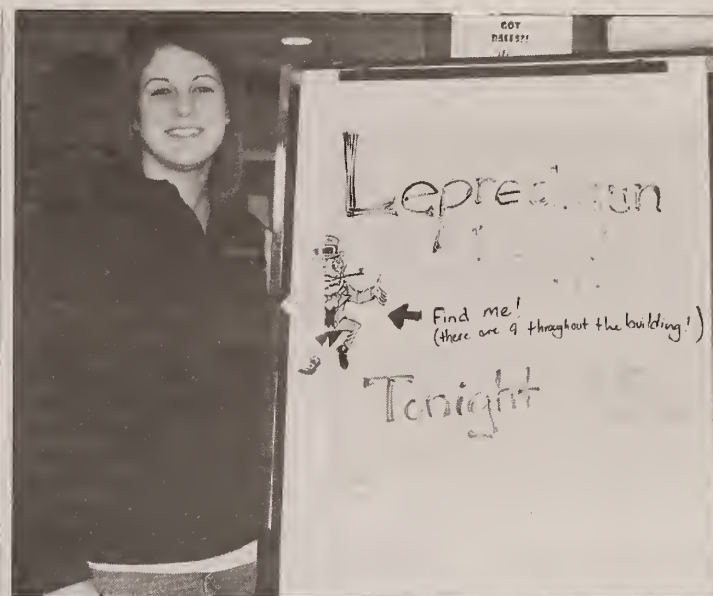 GOT
Leprechaun
Find me!
(there are 9 throughout the building!)
Tonight